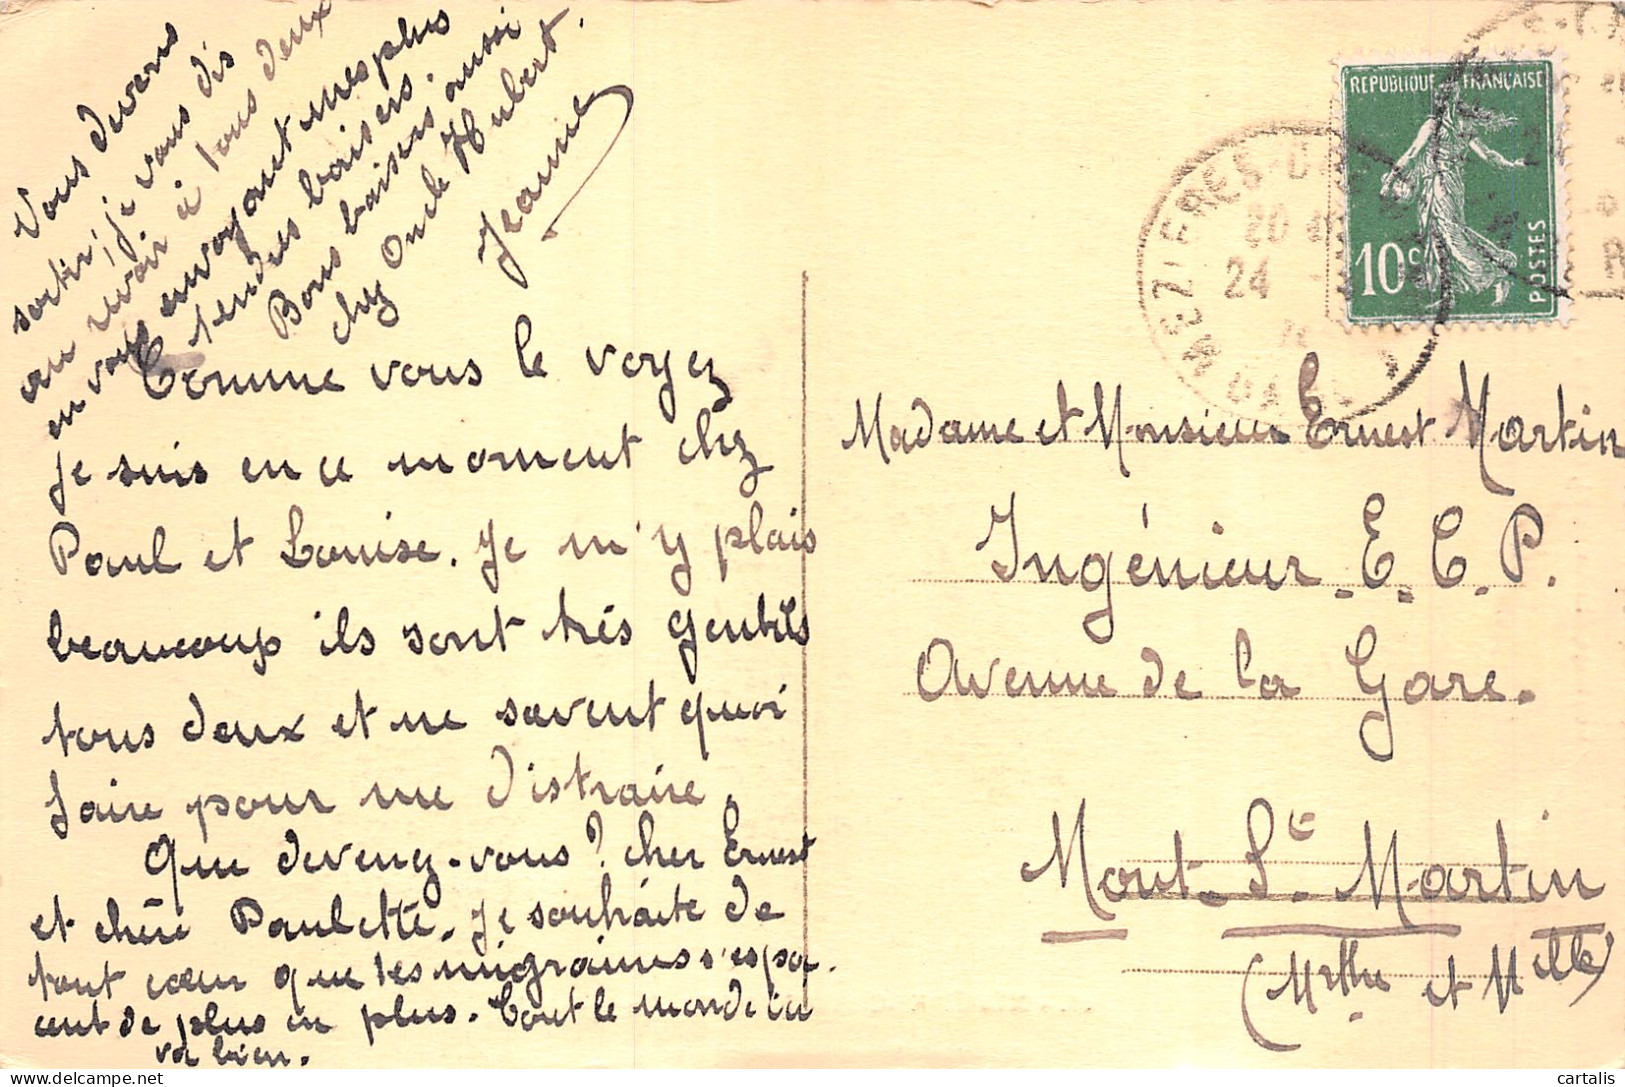 Comme vous le voyez
je suis en ce moment chez
Paul et Louise. Je m'y plais
beaucoup ils sont très gentils
tous deux et ne savent quoi
faire pour me distraire.
Que devenez-vous? cher Ernest
et chère Paulette. Je souhaite de
tout cœur que tes migraines s'espa-
cent de plus en plus. Tout le monde ici
va bien.
Vous devons
sortir, je vous dis
au revoir à tous deux
en vous envoyant mes plus
tendres baisers.
Bons baisers aussi
chez Oncle Hubert.
Jeanne
REPUBLIQUE FRANÇAISE
10c
POSTES
MEZIERES-
24
Madame et Monsieur Ernest Martin
Ingénieur E.C.P.
Avenue de la Gare.
Mont-St-Martin
(Mrthe et Mlle)
cartalis